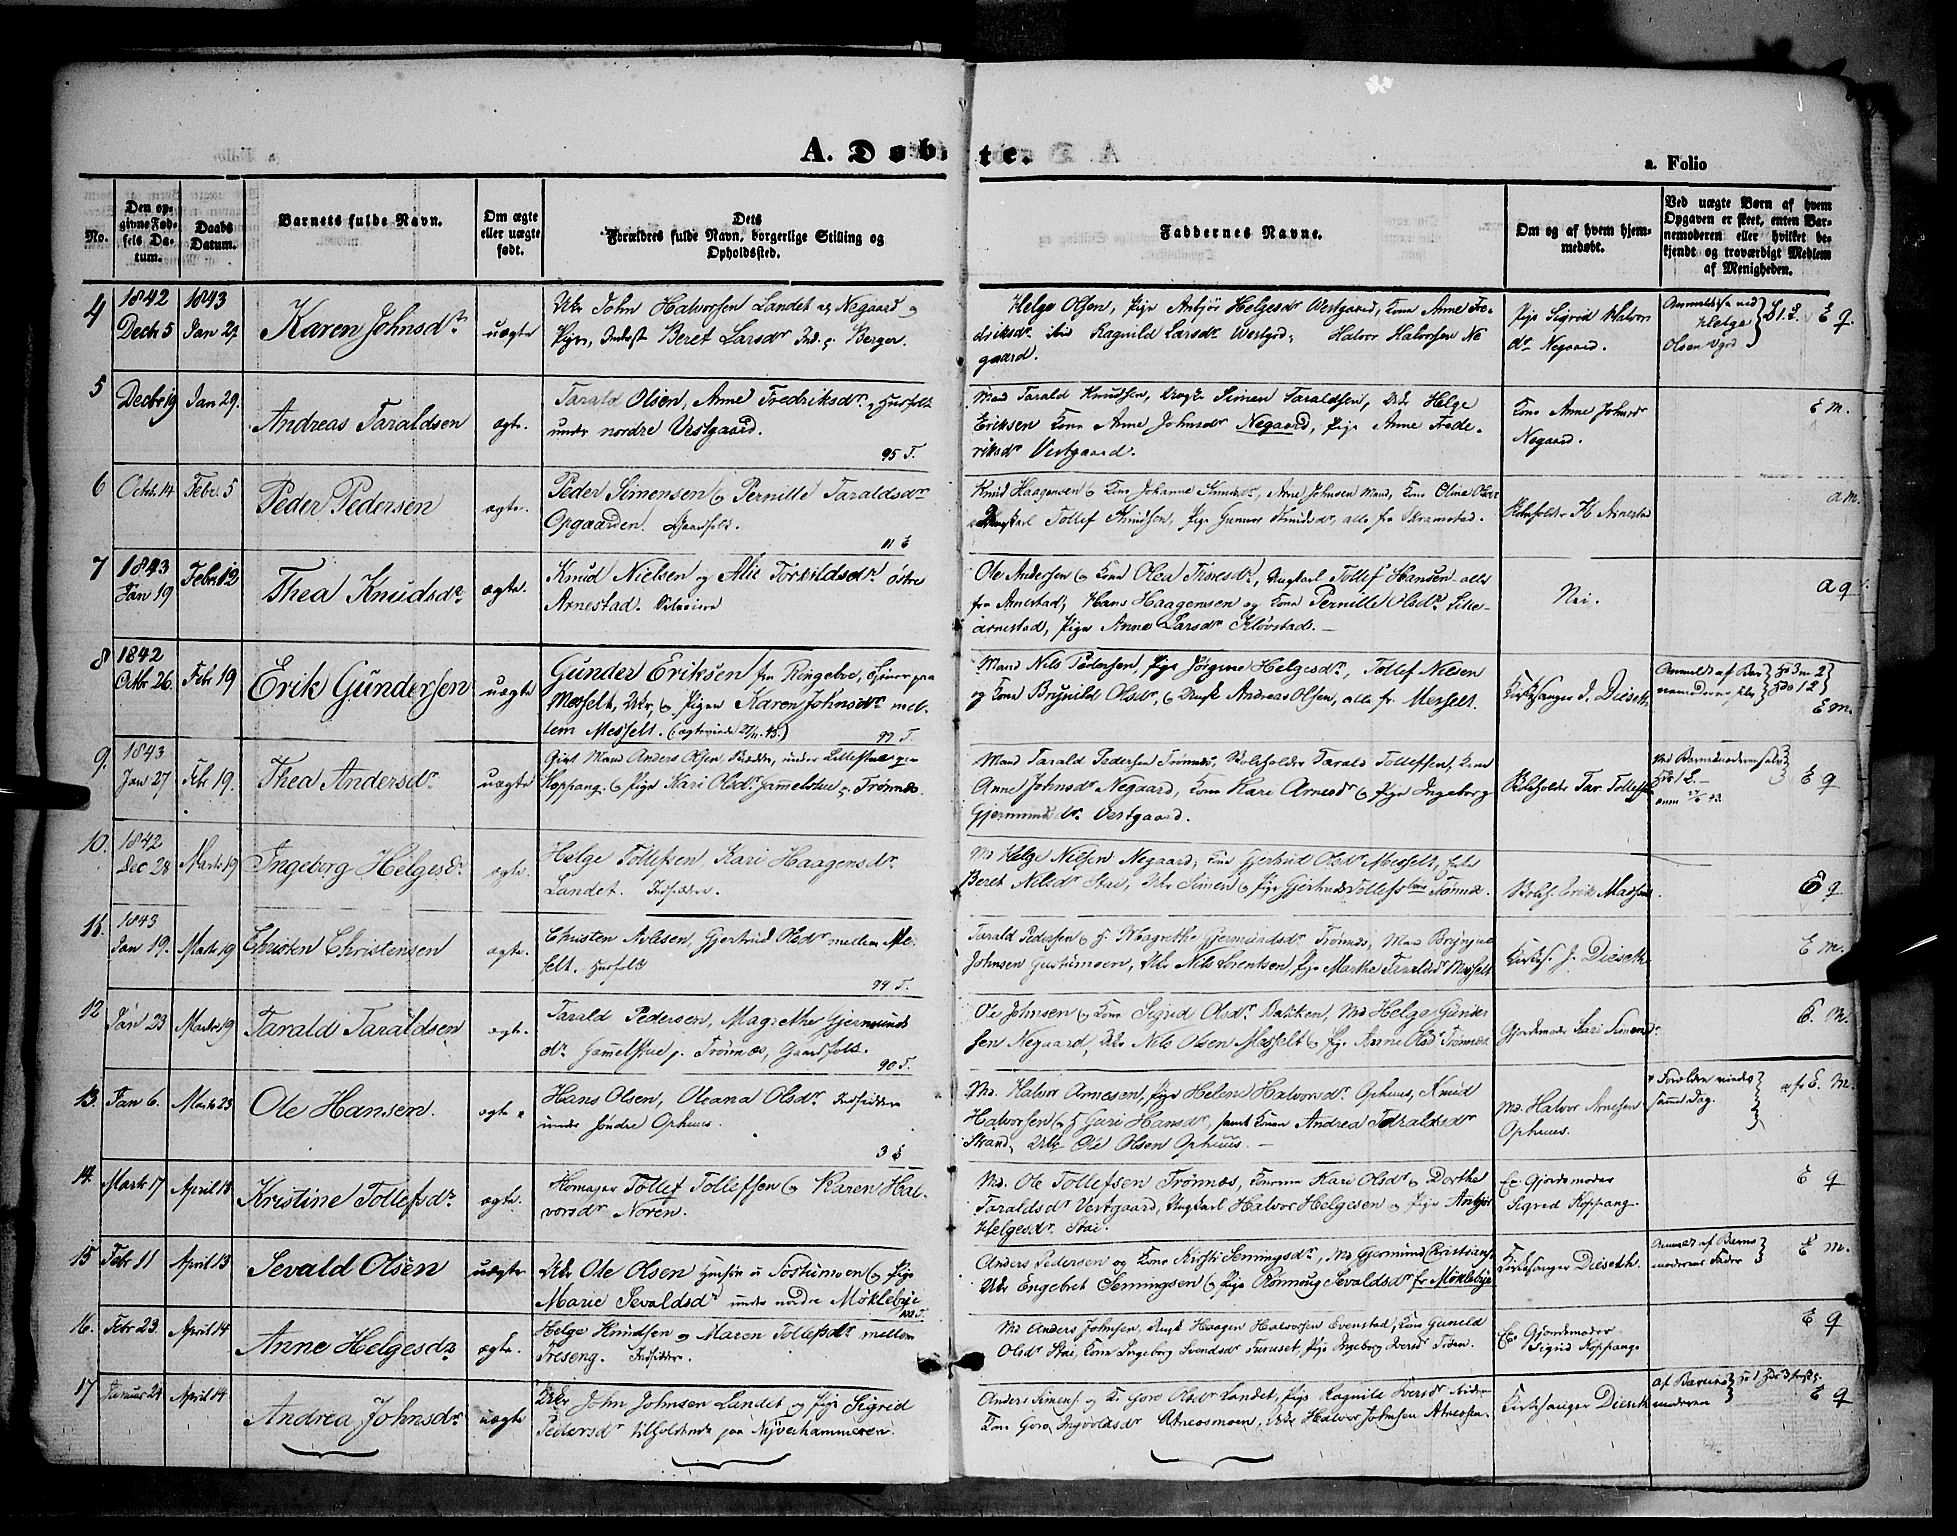 A. Døbte.
a. Folio
No.
Den op-
givne Fød-
sels Da-
tum.
Daabs
Datum.
Barnets fulde Navn.
Om ægte
eller uægte
født.
Dets
Forældres fulde Navn, borgerlige Stilling og
Opholdssted.
Faddernes Navne.
Om og af hvem hjem-
medøbt.
Ved uægte Børn af hvem
Opgaven er skeet, enten Bar-
nemoderen eller hvilket be-
kjendt og troværdigt Medlem
af Menigheden.
4
1842
Decb 5
1843
Jan 29.
Karen Johnsdr
uægte
Ukr John Halvorsen Landet og Negaard og
Pige, Beret Larsdr Berger.
Helge Olsen, Pige Anbjør Helgesdr Westgaard, Kone Anne Fre-
driksdr ibid Ragnild Larsdr Westgrd, Halvor Halvorsen Ne
gaard.
Pige Sigrid Halvors
dr Negaard.
Anmeldelse ved
Helge
Olsen Vgrd
E q.
5
Decbr 19
Jan 29.
Andreas Taraldsen
ægte.
Tarald Olsen, Anne Fredriksdr, Husfolk
under nordre Vestgaard.
95 T.
Mand Tarald Knudsen, Simen Taraldsen, Ukr Helge
Eriksen Kone Anne Johnsdr Negaard, Pige Anne Frede-
riksdr Vestgaard.
Kone Anne Johnsdr
Negaard.
E m.
6
Octb. 14
Febr. 5
Peder Pedersen
ægte.
Peder Simensen og Pernille Taraldsdr
Opgaarden. Gaardfolk.
11 E
Knud Haagensen og Kone Johanne Knudsdr, Arne Johnsen Mand, Kone Oline Olsdr
Ungkarl Tollef Knudsen, Pige Gunnor Knudsdr, alle fr Skramstad.
K Arnestad
a m.
7
1843
Jan 19
Febr. 12
Thea Knudsdr
ægte.
Knud Nielsen og Alie Torkildsdr østre
Arnestad.
Ole Andersen og Kone Olea Arnesdr, Ungkarl Tollef Hansen alle
fra Arnestad, Hans Haagensen og Kone Pernille Olsdr Lille-
arnestad, Pige Anne Larsdr Kløvstad. –
Nei.
a q
8
1842
Octbr 26.
Febr 19
Erik Gundersen
uægte
Gunder Eriksen fra Ringebo, tjener paa
Messelt, Ukr, og Pigen Karen Johnsdr mel-
lem Messelt. (ægteviede 27/11. 43.)
97 T.
Mand Nils Pedersen, Pige Jørgine Helgesdr, Tollef Nilsen
og Kone Brynild Olsdr, og Ungk Andreas Olsen, alle fr Messelt.
Kirkesanger J. Dieseth
Anmeldt af Bar
nemoderen selv
E m.
9.
1843
Jan 27
Febr 19.
Thea Andersdr
uægte
Gift Mand Anders Olsen Bredden, under Lillestue
Koppang. og Pige Kari Olsdr Gammelstue p. Trønnæs.
Mand Tarald Pedersen Trønnæs, Boleholder Tarald Tollefsen, Kone
Anne Johnsdr Negaard, Kone Kari Arnesdr og Pige Ingeborg
Gjermundsdr Vestgaard.
Boleholder Tar. Tollefsen
Ved Barnemoderen selv
E q
10.
1842
Dec 28
Marts 19
Ingeborg Helgesdr
ægte.
Helge Tollefsen, Kari Haagensdr
Landet. Indsiddere.
Md Helge Nielsen Negaard, Kone Gjertrud Olsdr Messelt, Enke
Beret Nilsdr Stai, Ukr Simen og Pige Gjertrud Tollefs Trønnæs.
Bolehl. Erik Madsen
E q
11.
1843
Jan 19.
Marts 19
Christen Christensen
ægte.
Christen Avlesen, Gjertrud Olsdr mellem Mes-
selt. Husfolk
94 T.
Tarald Pedersen og K Magrethe Gjermundsdr Trønnæs, Mand Brynjul
Johnsen Gustumoen, Ukr Nils Lorentsen, Pige Marthe Taraldsdr Messelt
Kirkes. J. Dieseth
E m.
12
Jan 23
Marts 19
Tarald Taraldsen
ægte.
Tarald Pedersen, Magrethe Gjermunds
dr Gamelstue p. Trønnæs, Gaardfolk.
90 T.
Ole Johnsen og Kone Sigrid Olsdr Bakken, Md Helge Gunder
sen Negaard, Ukr Nils Olsen Messelt og Pige Anne Olsd Trønnæs.
Gjordemoder Kari Simensdr
E. m.
13.
Jan 6.
Marts 23
Ole Hansen.
ægte
Hans Olsen, Oleana Olsdr Indsiddere
under søndre Ophuus.
3 E
Md. Halvor Arnesen, Pige Helene Halvorsdr. Ophuus, Knud
Halvorsen og K Guri Hansdr, samt Konen Andrea Taraldsdr
Strand, Ukr Ole Olsen Ophuus. –
Md. Halvor Arnesen
Ophuus.
Forældre viedes
samme Dag.
E. m.
14.
Marts 17
April 13
Kristine Tollefsdr
ægte.
Tollef Tollefsen og Karen Hal-
vorsdr Noren.
Md. Ole Tollefsen Trønnæs, Konerne Kari Olsdr og Dorthe
Taraldsdr Vestgaard, Ungkarl Halvor Helgesen og Pige Anbjør
Helgesdr Stai.
Ex Gjordemoder
Sigrid Koppang.
E q
15
Febr 11
April 13
Sevald Olsen
uægte
Ukr Ole Olsen Tostumoen og Pige
Marie Sevaldsdr under nordre Møklebye
102 T.
Anders Pedersen og Kone Kirsti Semmingsdr, Md Gjermund Christians.
Ukr Engebret Semmingsen og Pige Rønnoug Sevaldsdr fr Møklebye
Kirkesanger Dieseth.
Anmeldt af Barne
moderens Fader
E m.
16.
Febr 23.
April 14
Anne Helgesdr
ægte.
Helge Knudsen og Maren Tollefsdr mellem
Treseng. Indsiddere.
Md Anders Johnsen, Ungk Haagen Halvorsen Evenstad, Kone Guneld
Olsdr Stai, Kone Ingeborg Svendsdr Furuset, Pige Ingeborg Iversdr Trøen.
Ex Gjordemoder
Sigrid Koppang
E q
17
Januar 24
April 14
Andrea Johnsdr
uægte
Ukr John Johnsen Landet og Pige Sigrid
Pedersdr tilholdende paa Nyverhammeren.
Anders Simens. og K Goro Olsdr Landet, Pige Ragnild Iversdr
Kone Goro Ingvoldsdr Atneosmoen, Ukr Halvor Johnsen Atneosen.
Kirkesanger Dieseth
af Barne
moderen
E q